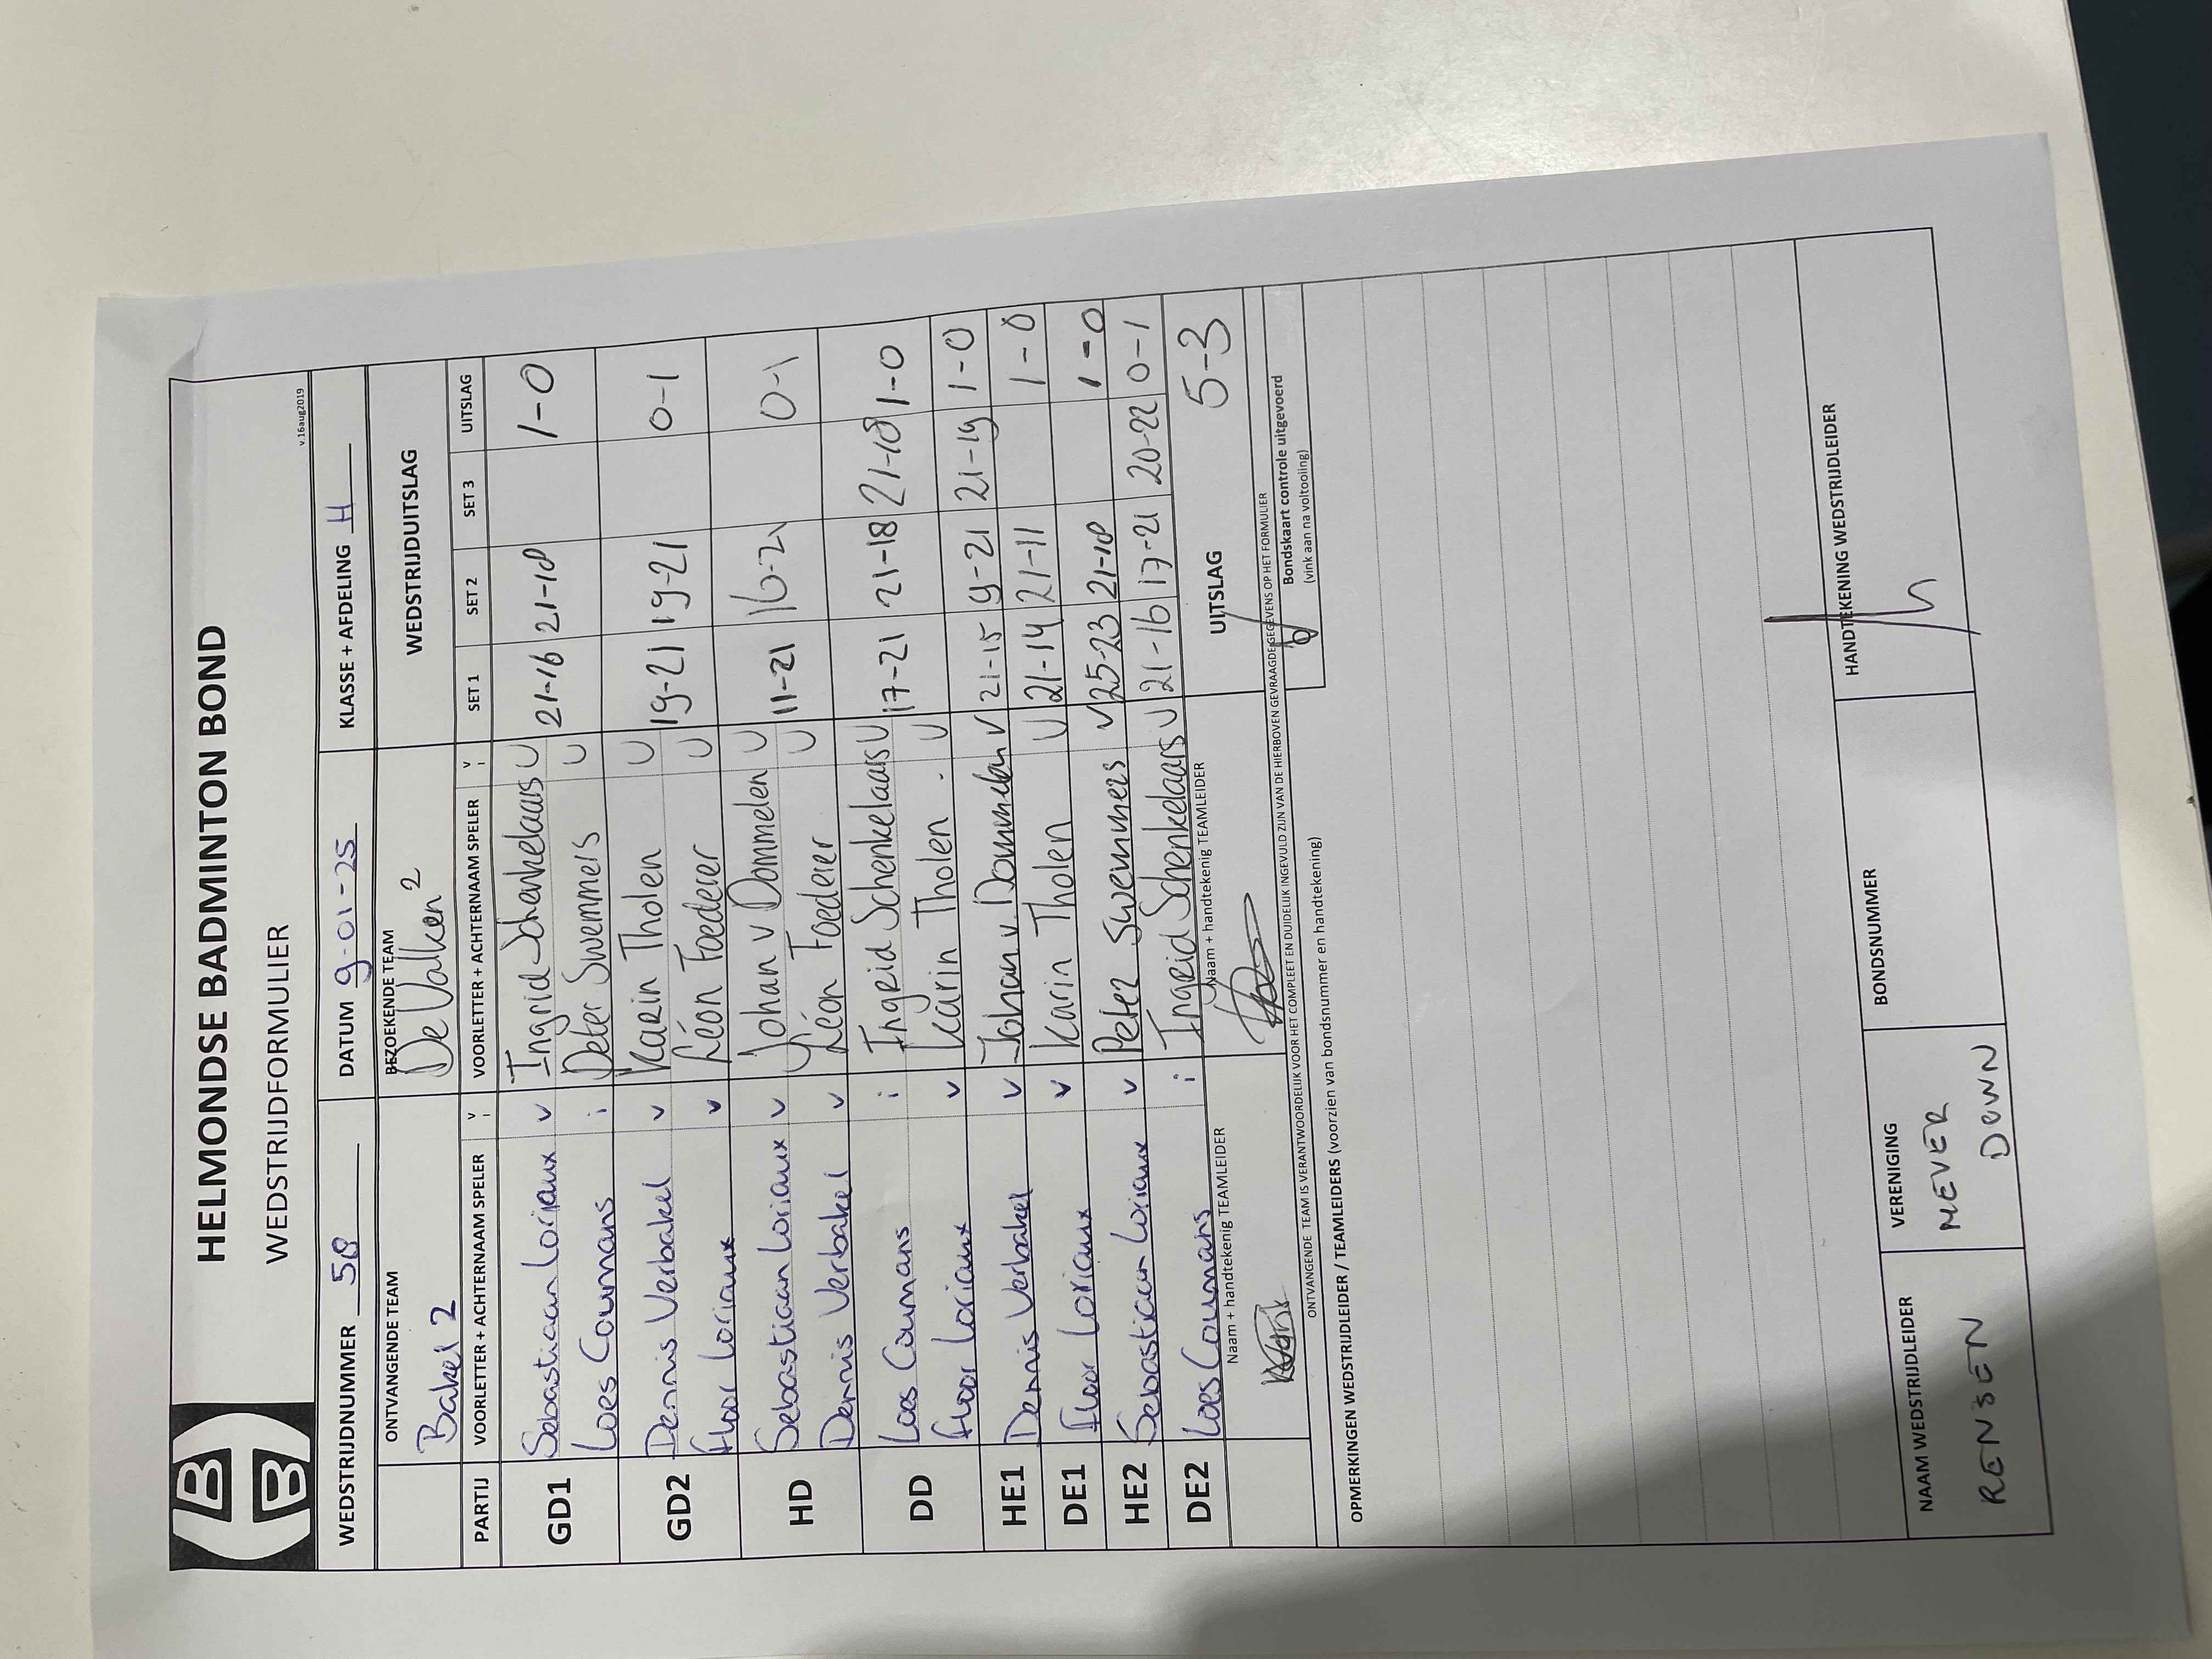 HELMONDSE BADMINTON BOND
WEDSTRIJDFORMULIER
v.16aug2019
WEDSTRIJDNUMMER 58 DATUM 9-01-25 KLASSE + AFDELING H
ONTVANGENDE TEAM BEZOEKENDE TEAM WEDSTRIJDUITSLAG
Bakel 2 De Valken 2
PARTIJ VOORLETTER + ACHTERNAAM SPELER v i VOORLETTER + ACHTERNAAM SPELER v i SET 1 SET 2 SET 3 UITSLAG
GD1 Sebastiaan Loriaux v Ingrid Schenkelaars U 21-16 21-18 1-0
Loes Coumans i Peter Swemmers U
GD2 Dennis Verbakel v Karin Tholen U 19-21 19-21 0-1
Floor Loriaux v Léon Foederer U
HD Sebastiaan Loriaux v Johan v Dommelen U 11-21 16-21 0-1
Dennis Verbakel v Léon Foederer U
DD Loes Coumans i Ingrid Schenkelaars U 17-21 21-18 21-18 1-0
Floor Loriaux v Karin Tholen U
HE1 Dennis Verbakel v Johan v. Dommelen v 21-15 9-21 21-19 1-0
DE1 Floor Loriaux v Karin Tholen U 21-14 21-11 1-0
HE2 Sebastiaan Loriaux v Peter Swemmers v 25-23 21-18 1-0
DE2 Loes Coumans i Ingrid Schenkelaars U 21-16 17-21 20-22 0-1
Naam + handtekenig TEAMLEIDER Naam + handtekenig TEAMLEIDER UITSLAG 5-3
ONTVANGENDE TEAM IS VERANTWOORDELIJK VOOR HET COMPLEET EN DUIDELIJK INGEVULD ZIJN VAN DE HIERBOVEN GEVRAAGDE GEGEVENS OP HET FORMULIER
Bondskaart controle uitgevoerd
(vink aan na voltooiing)
OPMERKINGEN WEDSTRIJDLEIDER / TEAMLEIDERS (voorzien van bondsnummer en handtekening)
NAAM WEDSTRIJDLEIDER VERENIGING BONDSNUMMER HANDTEKENING WEDSTRIJDLEIDER
RENSEN NEVER
DOWN